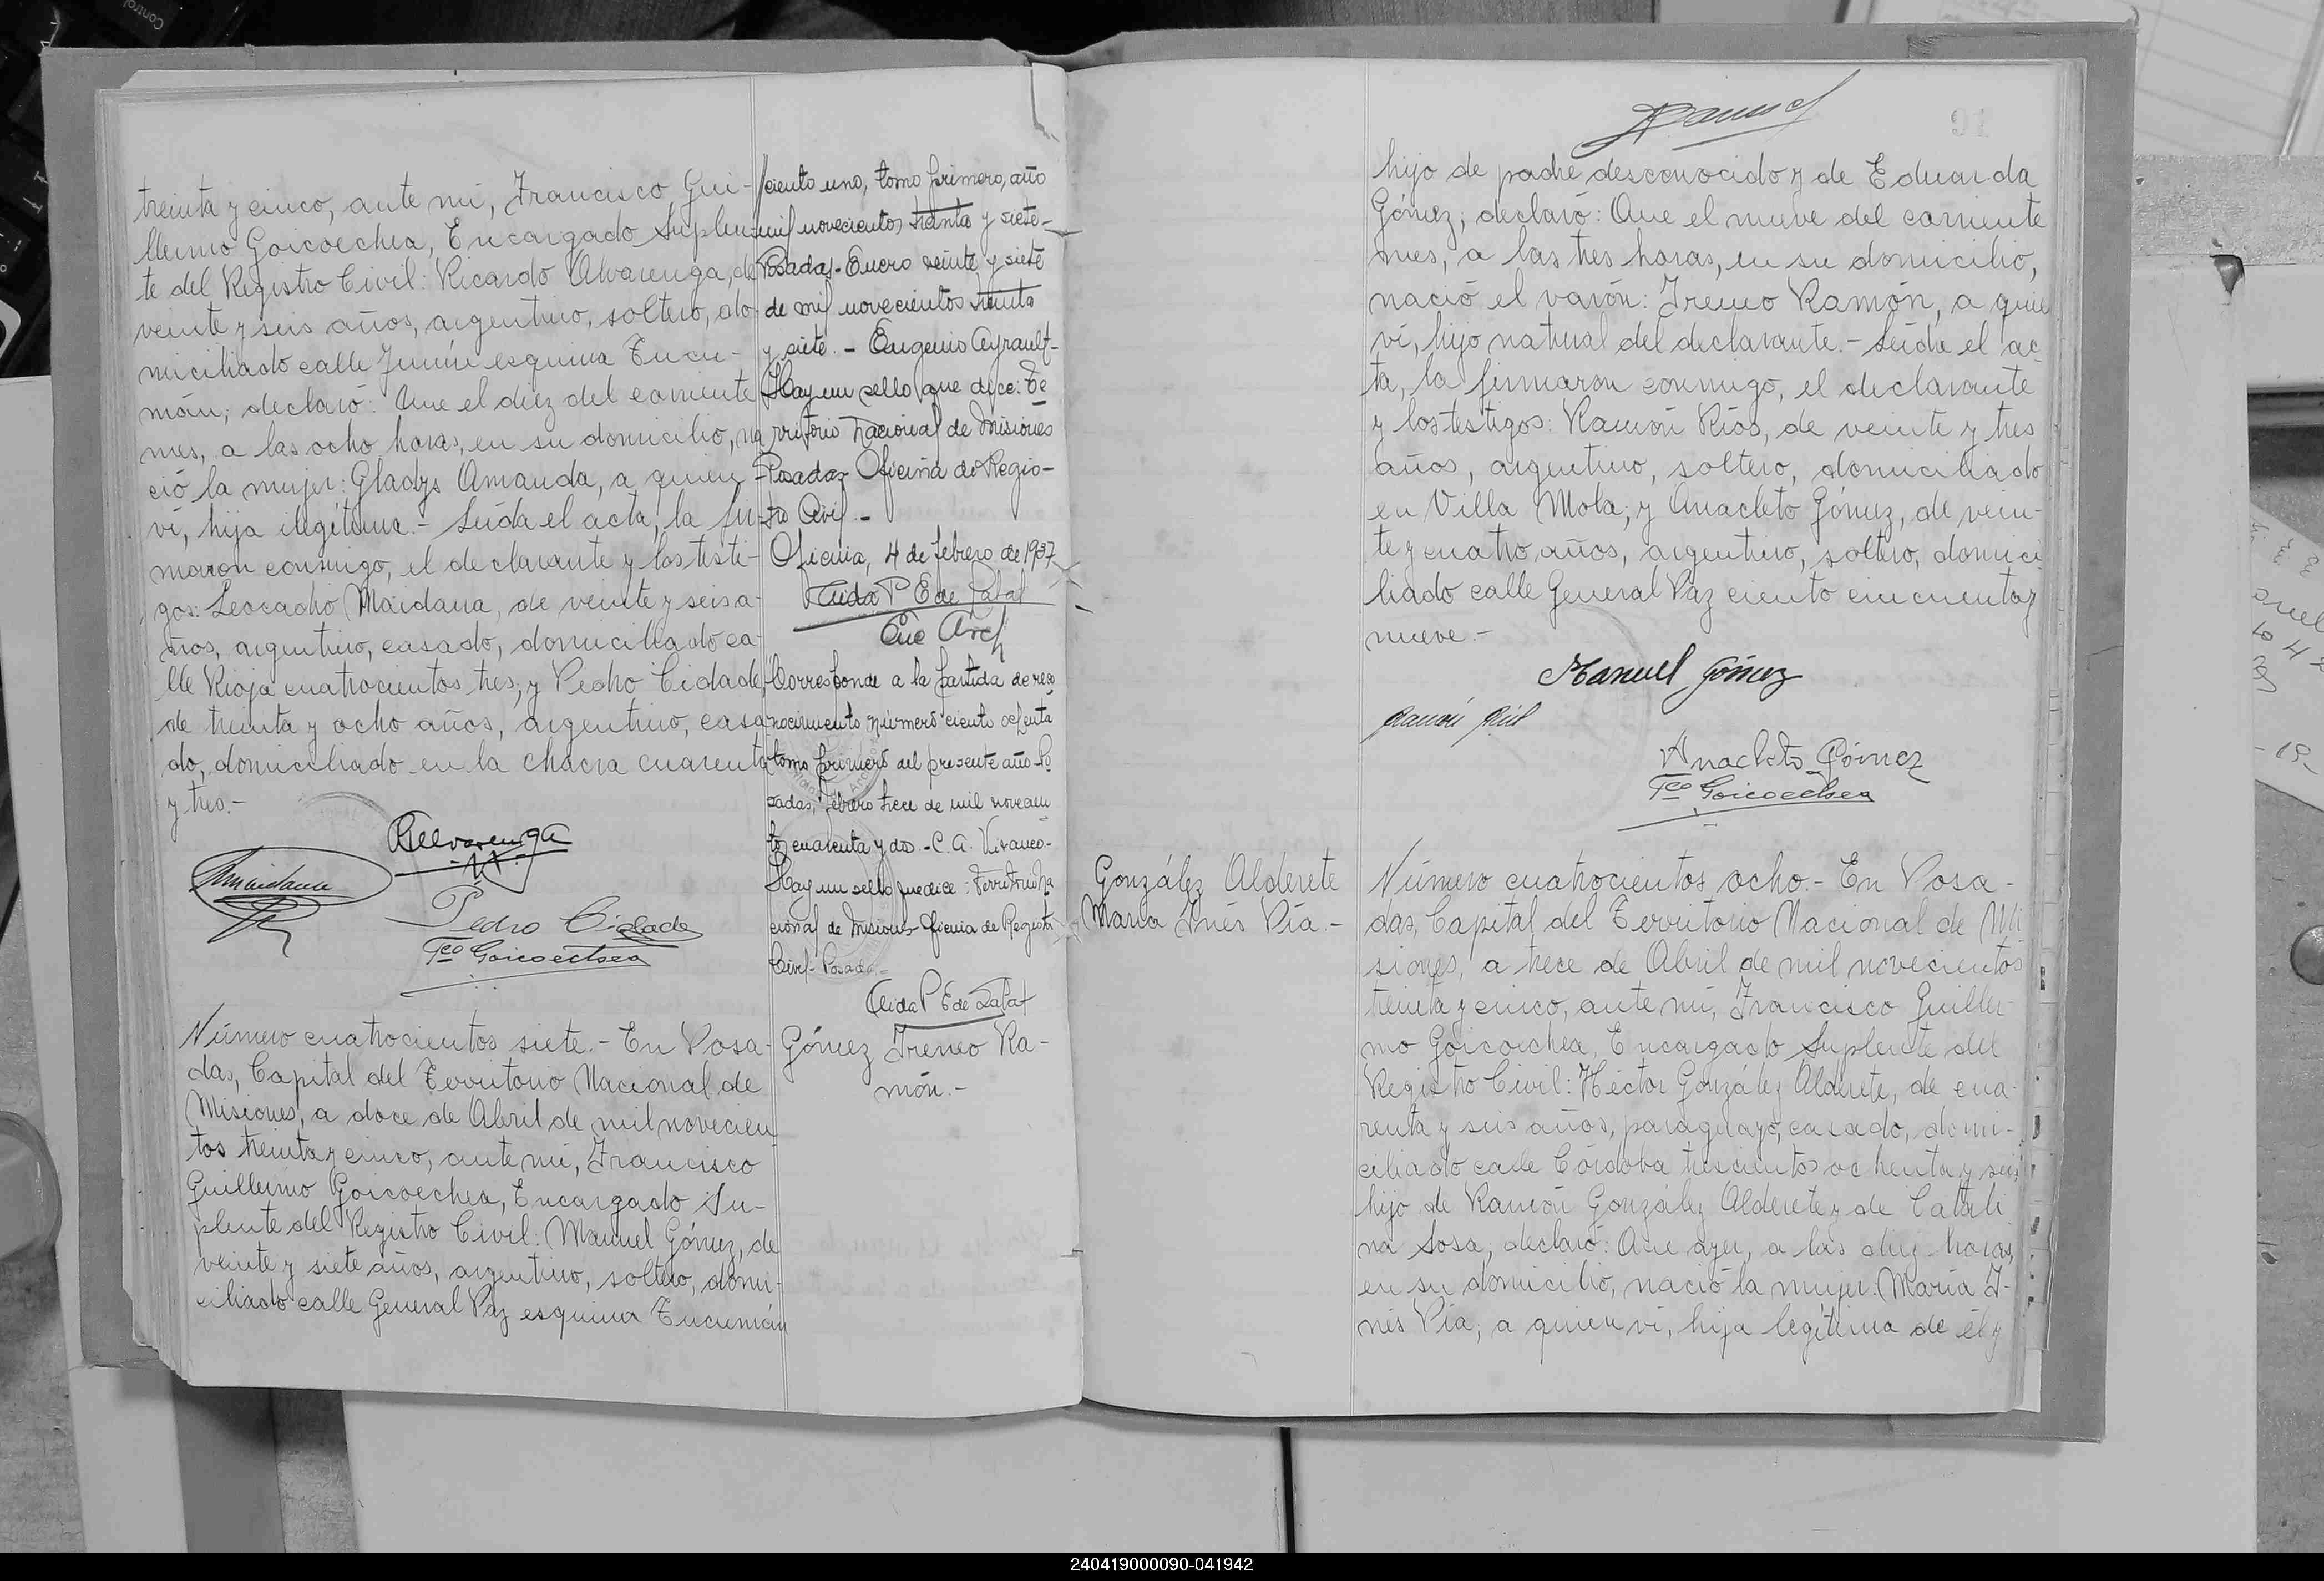 treinta y cinco, ante mí, Francisco Gui-
llermo Goicoechea, Encargado Suplen-
te del Registro Civil: Ricardo Alvarenga, de
veinte y seis años, argentino, soltero, do-
miciliado calle Junín esquina Tucu-
mán; declaró: Que el diez del corriente
mes, a las ocho horas, en su domicilio, na
ció la mujer: Gladys Amanda, a quien
ví, hija ilegítima.- Leída el acta, la fir-
maron conmigo, el declarante y los testi-
gos: Leocadio Maidana, de veinte y seis a-
ños, argentino, casado, domiciliado ca-
lle Rioja cuatrocientos tres; y Pedro Cidade,
de treinta y ocho años, argentino, casa
do, domiciliado en la chacra cuarenta
y tres.-
RAlvarenga
Lmaidana
Pedro Cidade
Fco Goicoechea
Número cuatrocientos siete.- En Posa-
das, Capital del Territorio Nacional de
Misiones, a doce de Abril de mil novecien
tos treinta y cinco, ante mí, Francisco
Guillermo Goicoechea, Encargado Su-
plente del Registro Civil: Manuel Gómez, de
veinte y siete años, argentino, soltero, domi-
ciliado calle General Paz esquina Tucumán
//ciento uno, tomo primero, año
mil novecientos treinta y siete-
Posadas- Enero veinte y siete
de mil novecientos treinta
y siete.- Eugenio Ayrault-
Hay un sello que dice: Te
rritorio Nacional de Misiones
Posadas- Oficina de Regis-
tro Civil.-
Oficina, 4 de febrero de 1937
Enc Arch
Corresponde a la partida de reco
nocimiento número ciento ochenta
tomo primero del presente año Po
sadas, febrero trece de mil novecien
tos cuarenta y dos.- C. A. Vivanco-
Hay un sello que dice: Territorio Na
cional de Misiones- Oficina de Registro
Civil- Posadas-
Gómez Ireneo Ra-
món.-
91
hijo de padre desconocido y de Eduarda
Gómez; declaró: Que el nueve del corriente
mes, a las tres horas, en su domicilio,
nació el varón: Ireneo Ramón, a quien
ví, hijo natural del declarante.- Leída el ac
ta, la firmaron conmigo, el declarante
y los testigos: Ramón Ríos, de veinte y tres
años, argentino, soltero, domiciliado
en Villa Mola; y Anacleto Gómez, de vein-
te y cuatro años, argentino, soltero, domici
liado calle General Paz ciento cincuenta y
nueve.-
Manuel Gómez
Ramón
Anacleto Gómez
Fco Goicoechea
González Alderete
María Inés Pía.-
Número cuatrocientos ocho.- En Posa-
das, Capital del Territorio Nacional de Mi
siones, a trece de Abril de mil novecientos
treinta y cinco, ante mí, Francisco Guiller
mo Goicoechea, Encargado Suplente del
Registro Civil: Héctor González Alderete, de cua-
renta y seis años, paraguayo, casado, domi-
ciliado calle Córdoba trescientos ochenta y seis,
hijo de Ramón González Alderete y de Catali
na Sosa; declaró: Que ayer, a las diez horas,
en su domicilio, nació la mujer: María I-
nés Pía, a quien ví, hija legítima de él y
240419000090-041942